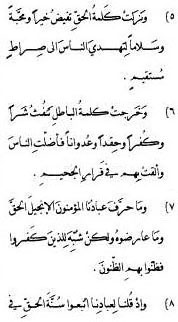 (٥) وَتَرَكَتْ كلمةُ الحقِّ تفيضُ خيراً ومحبَّةً
وسلاماً لتهديَ الناسَ الى صراطٍ
مستقيمٍ .
(٦) وخَرَجتْ كلمةُ الباطلِ نَفَثَتْ شرّاً
وكفراً وحِقداً وعدواناً فأضلَّتِ الناسَ
وألقتْ بهم في قرارِ الجحيمِ .
(٧) وما حرَّف عبادُنا المؤمنونَ الإنجيلَ الحقَّ
وما عارضوهُ ولكنْ شُبِّهَ للذينَ كفروا
فظنّوا بهم الظُّنونَ .
(٨) وإذ قُلنا لعبادِنا اتَّبعوا سُنَّةَ الحقِّ في